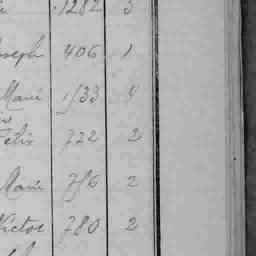 1282 3
oseph 406 1
Marie 1533 4
Félix 772 2
Marie 756 2
Victor 780 2